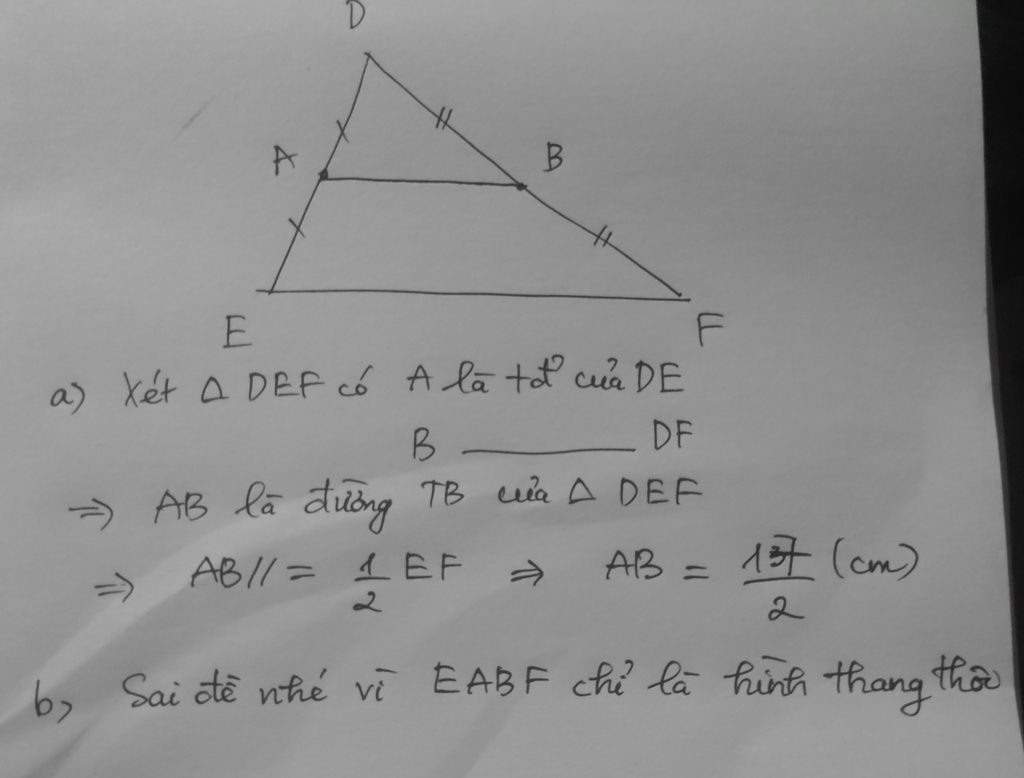 D
A
B
E
F
a) Xét Δ DEF có A là tđ của DE
B ——— DF
=> AB là đường TB của Δ DEF
=> AB // = 1/2 EF => AB = /2 (cm)
b, Sai đề nhé vì EABF chỉ là hình thang thôi